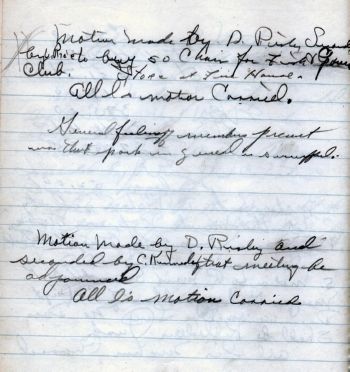 Motion made by D. Risly Second
by to buy 50 Chair for Fish & Game
Club. Store at Fire House.
All I's motion Carried.
General feeling members present
was that park in general is
Motion Made by D. Risly and
seconded by C. that meeting be
adjourned
All I's motion Carried